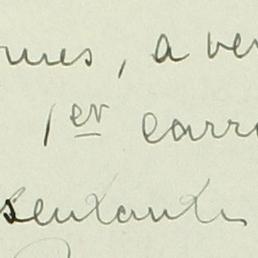 rmes, a ver
1er carr
sentante